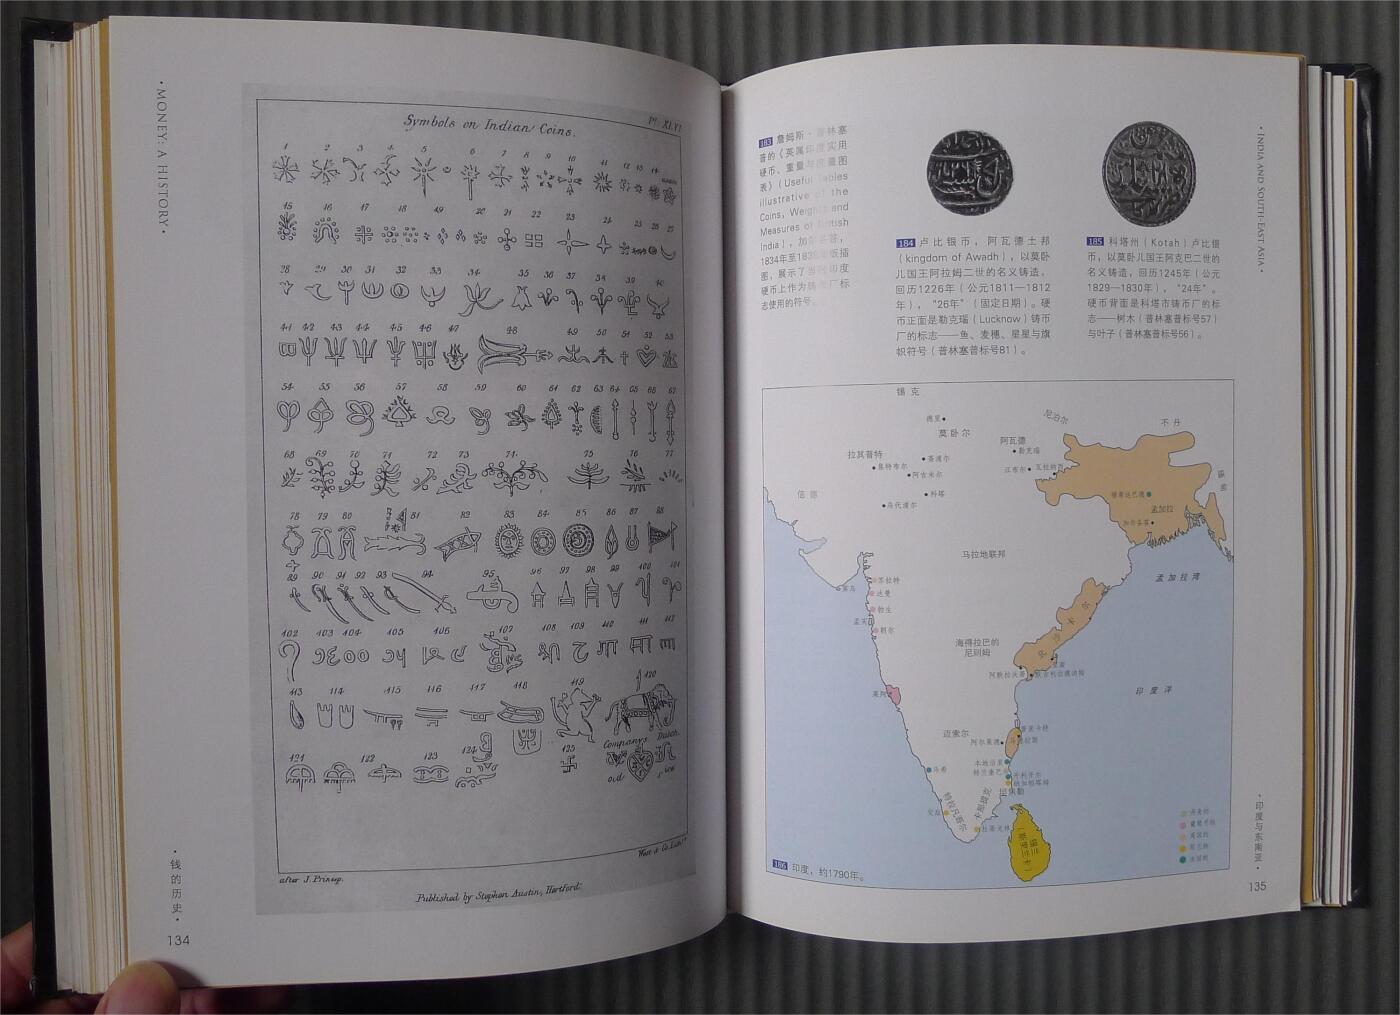 · MONEY: A HISTORY ·
Symbols on Indian Coins.
Pl. XLVI
1 2 3 4 5 6 7 8 9 10 11 12 13 14
15 16 17 18 19 20 21 22 23 24 25 26 27
28 29 30 31 32 33 34 35 36 37 38 39 40
41 42 43 44 45 46 47 48 49 50 51 52 53
54 55 56 57 58 59 60 61 62 63 64 65 66 67
68 69 70 71 72 73 74 75 76 77
78 79 80 81 82 83 84 85 86 87 88
89 90 91 92 93 94 95 96 97 98 99 100 101
102 103 104 105 106 107 108 109 110 111 112
113 114 115 116 117 118 119 120
Company's Dutch.
121 122 123 124 125
old
after J. Prinsep.
West & Co. Lith.
Published by Stephen Austin, Hertford.
· 钱的历史 ·
134
183 詹姆斯·普林塞
普的《英属印度实用
硬币、重量与度量图
表》(Useful Tables
illustrative of the
Coins, Weights and
Measures of British
India),加尔各答,
1834年至
图,展示了当时印度
硬币上作为铸币厂标
志使用的符号。
184 卢比银币,阿瓦德土邦
(kingdom of Awadh),以莫卧
儿国王阿拉姆二世的名义铸造,
回历1226年(公元1811—1812
年),“26年”(固定日期)。硬
币正面是勒克瑙(Lucknow)铸币
厂的标志——鱼、麦穗、星星与旗
帜符号(普林塞普标号81)。
185 科塔州(Kotah)卢比银
币,以莫卧儿国王阿克巴二世的
名义铸造,回历1245年(公元
1829—1830年),“24年”。
硬币背面是科塔市铸币厂的标
志——树木(普林塞普标号57)
与叶子(普林塞普标号56)。
· INDIA AND SOUTH-EAST ASIA ·
锡克
德里
尼泊尔
不丹
莫卧尔
阿瓦德
勒克瑙
拉其普特
斋浦尔
焦特布尔
阿吉米尔
江布尔
瓦拉纳西
信德
科塔
乌代浦尔
孟加拉
加尔各答
马拉地联邦
苏拉特
达曼
勃生
孟买
朝尔
孟加拉湾
海得拉巴的
尼则姆
果阿
印度洋
迈索尔
普里卡特
阿尔果德
本地治里
马希
特拉凡哥尔
186 印度,约1790年。
丹麦的
葡萄牙的
英国的
荷兰的
法国的
· 印度与东南亚 ·
135